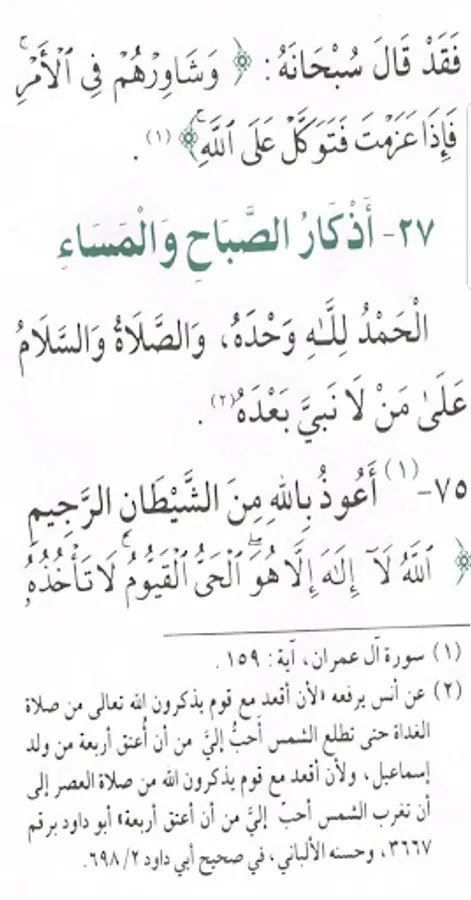 فَقَدْ قَالَ سُبْحَانَهُ: ﴿ وَشَاوِرْهُمْ فِي ٱلْأَمْرِۖ
فَإِذَا عَزَمْتَ فَتَوَكَّلْ عَلَى ٱللَّهِۚ﴾(١).
٢٧- أَذْكَارُ الصَّبَاحِ وَالْمَسَاءِ
الْحَمْدُ لِلَّـهِ وَحْدَهُ، وَالصَّلَاةُ وَالسَّلَامُ
عَلَى مَنْ لَا نَبِيَّ بَعْدَهُ(٢).
٧٥-(١) أَعُوذُ بِاللهِ مِنَ الشَّيْطَانِ الرَّجِيمِ
﴿ ٱللَّهُ لَآ إِلَـٰهَ إِلَّا هُوَ ٱلْحَيُّ ٱلْقَيُّومُۚ لَا تَأْخُذُهُۥ
(١) سورة آل عمران، آية: ١٥٩.
(٢) عن أنس يرفعه «لأن أقعد مع قوم يذكرون الله تعالى من صلاة
الغداة حتى تطلع الشمس أَحبُّ إليَّ من أن أُعتق أربعة من ولد
إسماعيل، ولأن أقعد مع قوم يذكرون الله من صلاة العصر إلى
أن تغرب الشمس أحبّ إليَّ من أن أعتق أربعة» أبو داود برقم
٣٦٦٧، وحسنه الألباني، في صحيح أبي داود ٢/ ٦٩٨.